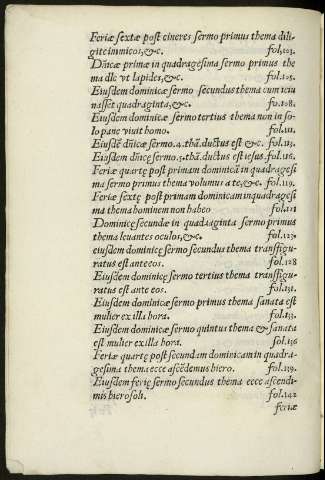 Feriæ sextæ post cineres sermo primus thema dili
gite inimicos, &c. fol,123.
Dñicæ primæ in quadragesima sermo primus the
ma dic vt lapides, &c. fol.125.
Eiusdem dominicæ sermo secundus thema cum ieiu
nasset quadraginta, &c. fo.108.
Eiusdem dominicæ sermo tertius thema non in so-
lo pane viuit homo. fol.111.
Eiusdẽ dñicæ sermo.4.thã. ductus est &c. fol.113.
Eiusdem dñicę sermo.5.thã. ductus est iesus. fol.116.
Feriæ quartę post primam dominicã in quadragesi
ma sermo primus thema volumus a te, &c. fol.119.
Feriæ sextę post primam dominicam in quadragesi
ma thema hominem non habeo fol.121
Dominicę secundæ in quadraginta sermo primus
thema leuantes oculos, &c. fol.123.
eiusdem dominicę sermo secundus thema transfigu-
ratus est ante eos. fol.128
Eiusdem dominicę sermo tertius thema transfigu-
ratus est ante eos. fol.131.
Eiusdem dominicæ sermo primus thema sanata est
mulier ex illa hora. fol.133.
Eiusdem dominicæ sermo quintus thema & sanata
est mulier ex illa hora. fol.136
Feriæ quartę post secundam dominicam in quadra-
gesima thema ecce ascẽdemus hiero. fol.139.
Eiusdem ferię sermo secundus thema ecce ascendi-
mus hierosoli. fol.142
feriæ